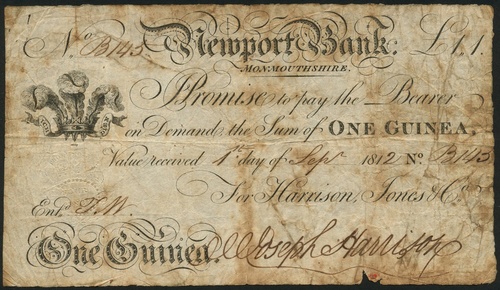 No B143 Newport Bank: £1,1
Monmouthshire.
I Promise to pay the Bearer
on Demand the Sum of ONE GUINEA,
Value received 1st day of Sepr 1812 No B143
For Harrison, Jones & Co
Entd. T.W.
One Guinea Joseph Harrison